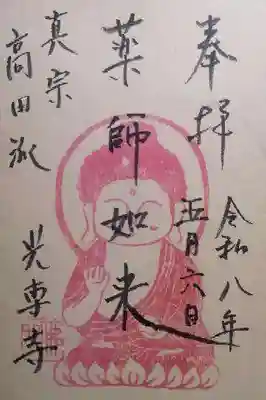 奉拝
令和八年
正月六日
薬師如来
真宗
高田派
光専寺